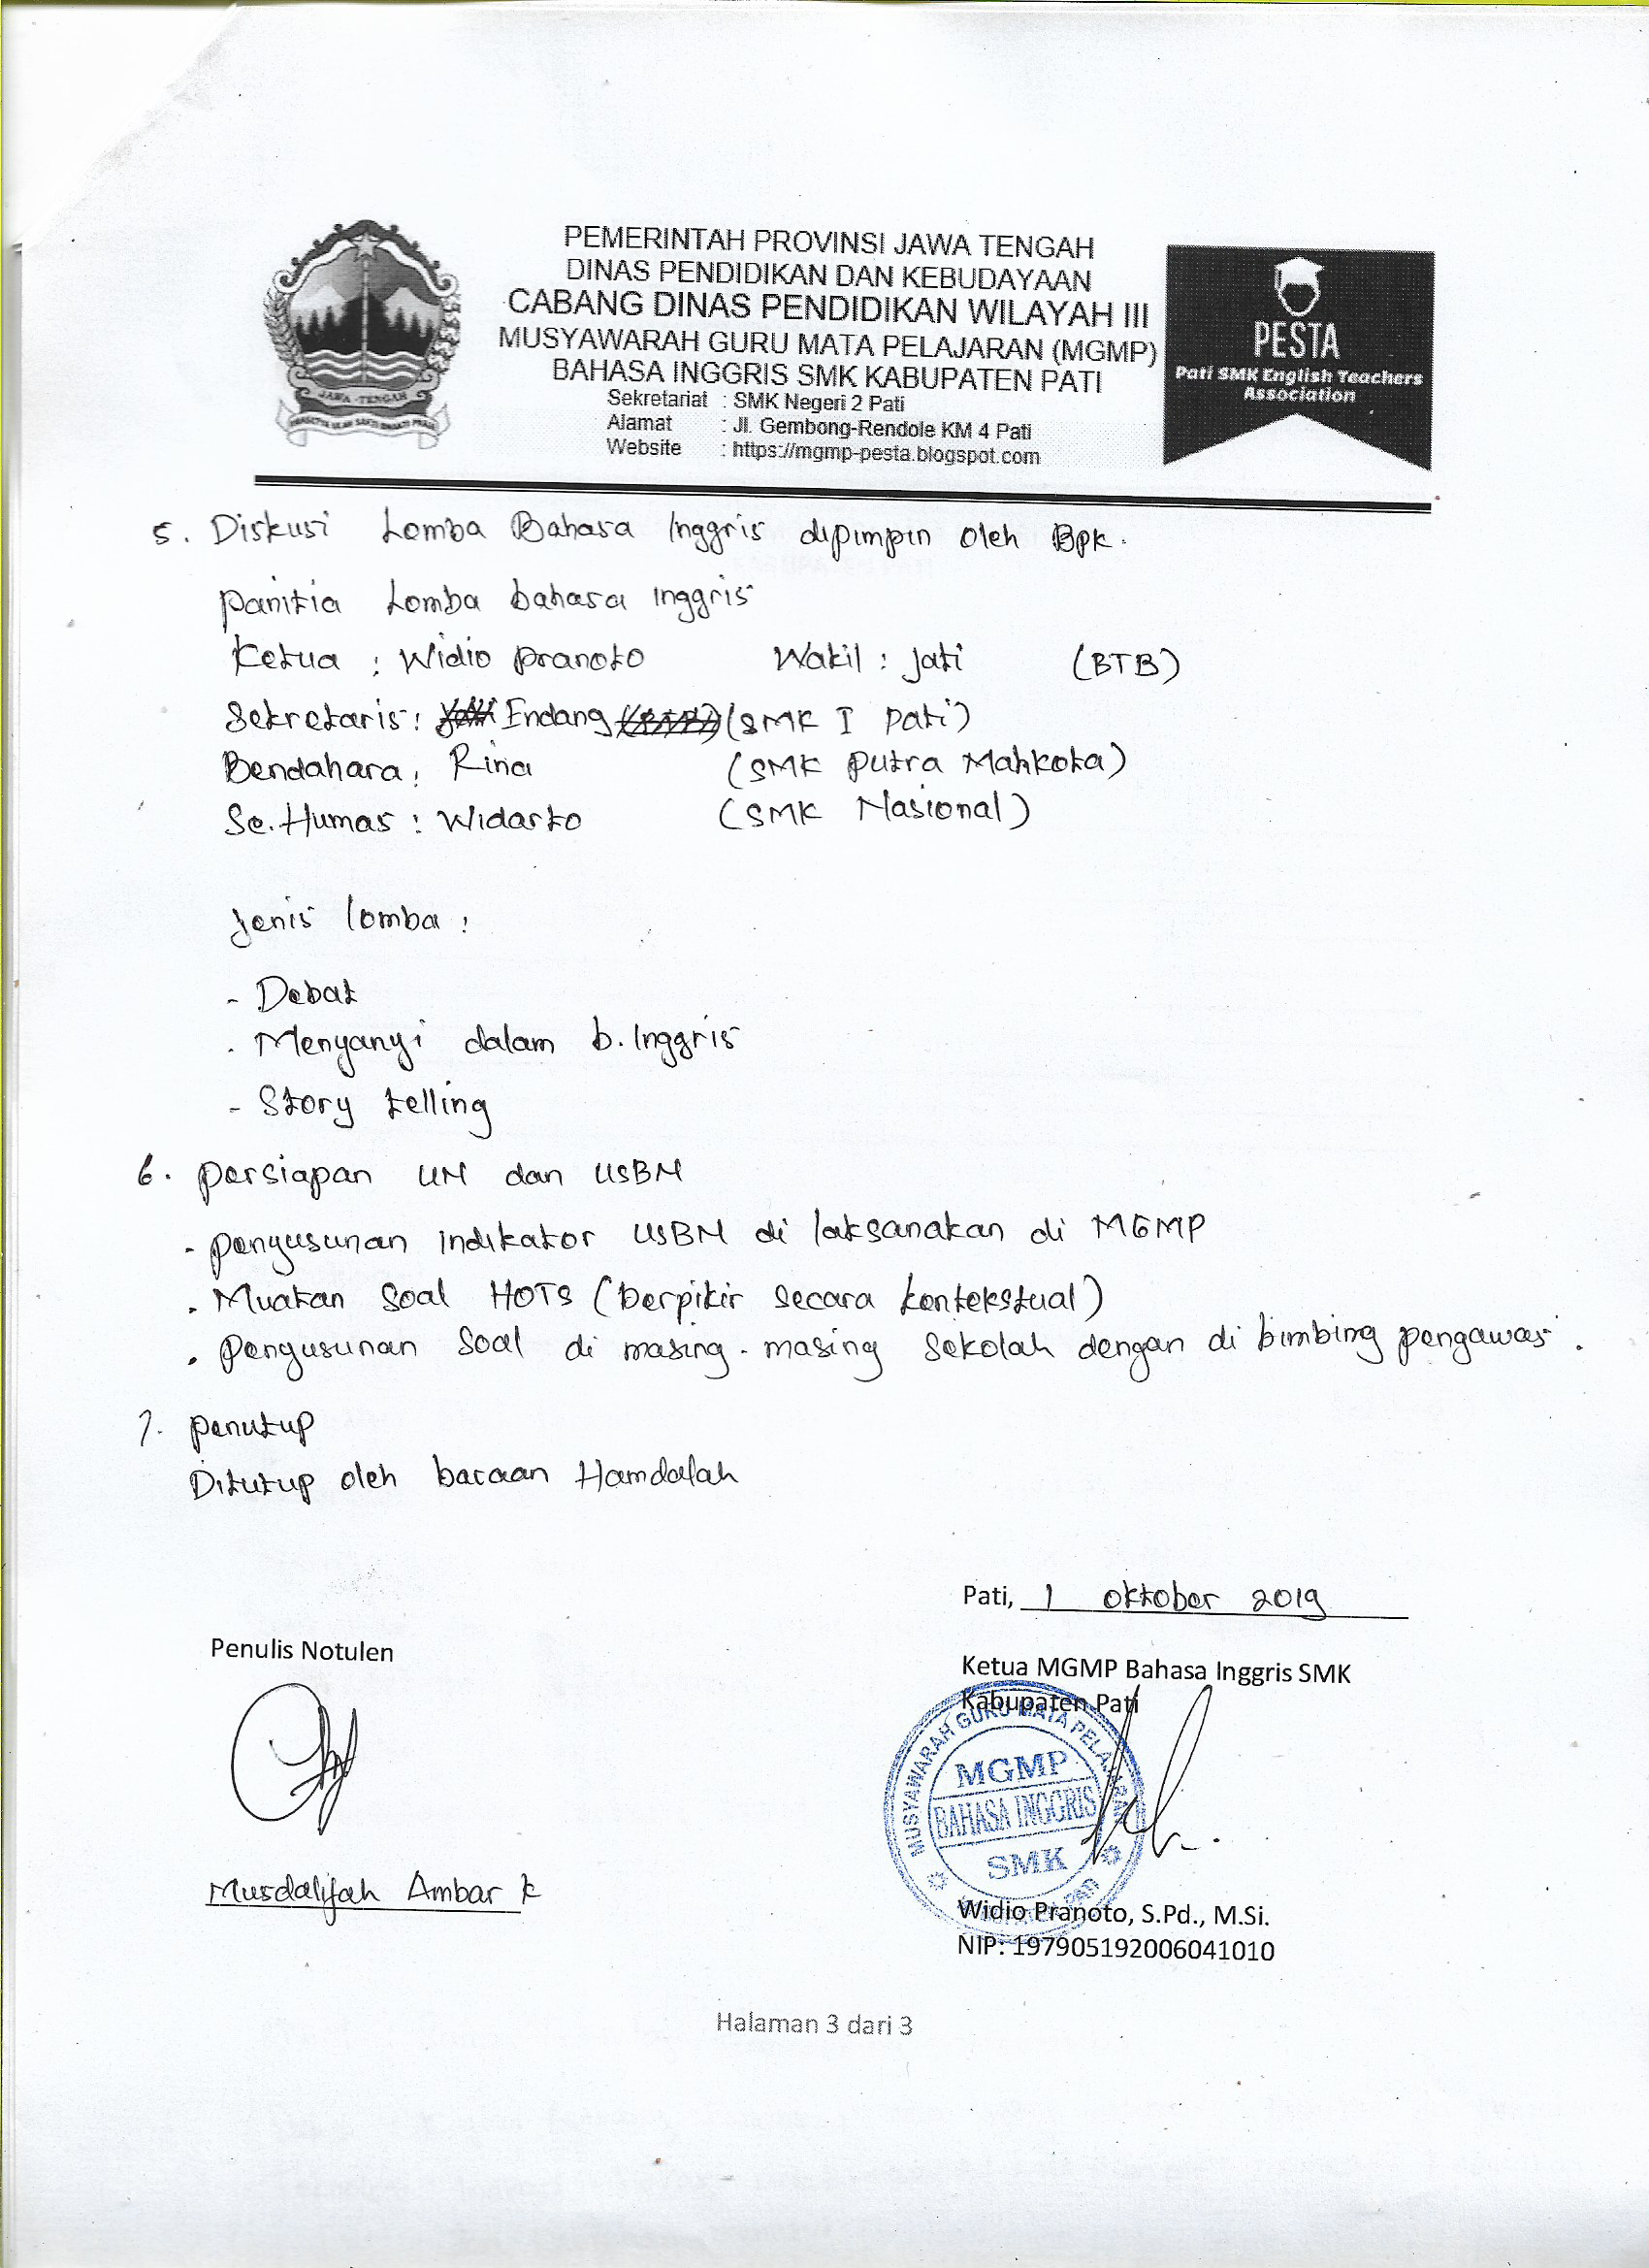 PEMERINTAH PROVINSI JAWA TENGAH
DINAS PENDIDIKAN DAN KEBUDAYAAN
CABANG DINAS PENDIDIKAN WILAYAH III
MUSYAWARAH GURU MATA PELAJARAN (MGMP)
BAHASA INGGRIS SMK KABUPATEN PATI
Sekretariat : SMK Negeri 2 Pati
Alamat : Jl. Gembong-Rendole KM 4 Pati
Website : https://mgmp-pesta.blogspot.com
JAWA - TENGAH
PESTA
Pati SMK English Teachers
Association
5. Diskusi Lomba Bahasa Inggris dipimpin oleh Bpk.
panitia Lomba bahasa inggris
Ketua : Widio pranoto Wakil : jati (BTB)
Sekretaris : Endang (SMK I pati)
Bendahara : Rina (SMK putra Mahkota)
Se. Humas : Widarto (SMK Nasional)
Jenis lomba :
- Debat
. Menyanyi dalam b. Inggris
- Story telling
6. persiapan UN dan USBN
- penyusunan indikator USBN di laksanakan di MGMP
. Muatan Soal HOTS (berpikir secara kontekstual)
. penyusunan Soal di masing - masing Sekolah dengan di bimbing pengawas .
7. penutup
Ditutup oleh bacaan Hamdalah
Pati, 1 oktober 2019
Penulis Notulen
Ketua MGMP Bahasa Inggris SMK
Kabupaten Pati
MUSYAWARAH GURU MATA PELAJARAN
MGMP
BAHASA INGGRIS
SMK
Musdalifah Ambar K
Widio Pranoto, S.Pd., M.Si.
NIP: 197905192006041010
Halaman 3 dari 3